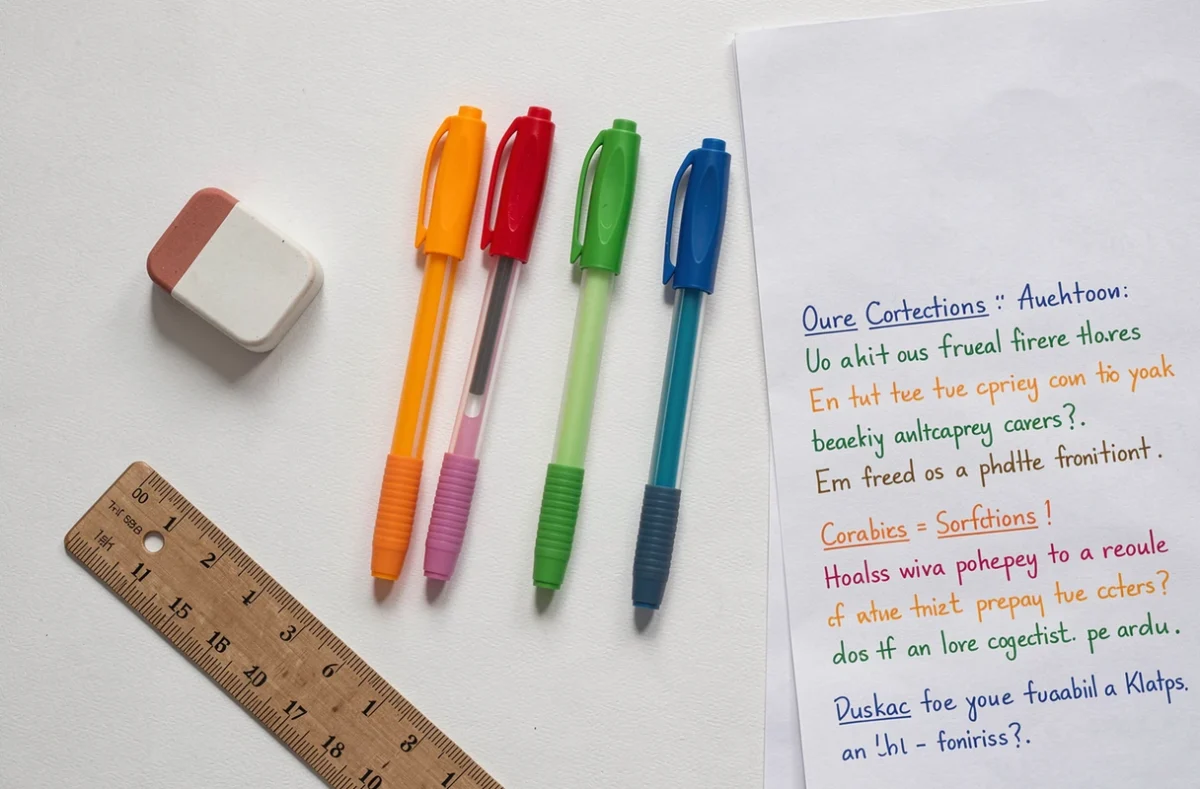 00 1 2 1 3 6 1 3 1
11 15 18 20 17 18 10
Oure Cortections :: Auehtoon:
Uo ahit ous frueal firere tlores
En tut tee tue cpriey coun tio yoak
beaekiy anltcaprey cavers?.
Em freed os a phdtte fronitiont.
Corabics = Sorfctions!
Hoalss wiva pohepey to a reoule
cf atue tnizt prepay tue ccters?
dos tf an lore cogectist. pe ardu.
Duskac foe youe fuaabiil a Klatps.
an - foniriss?.